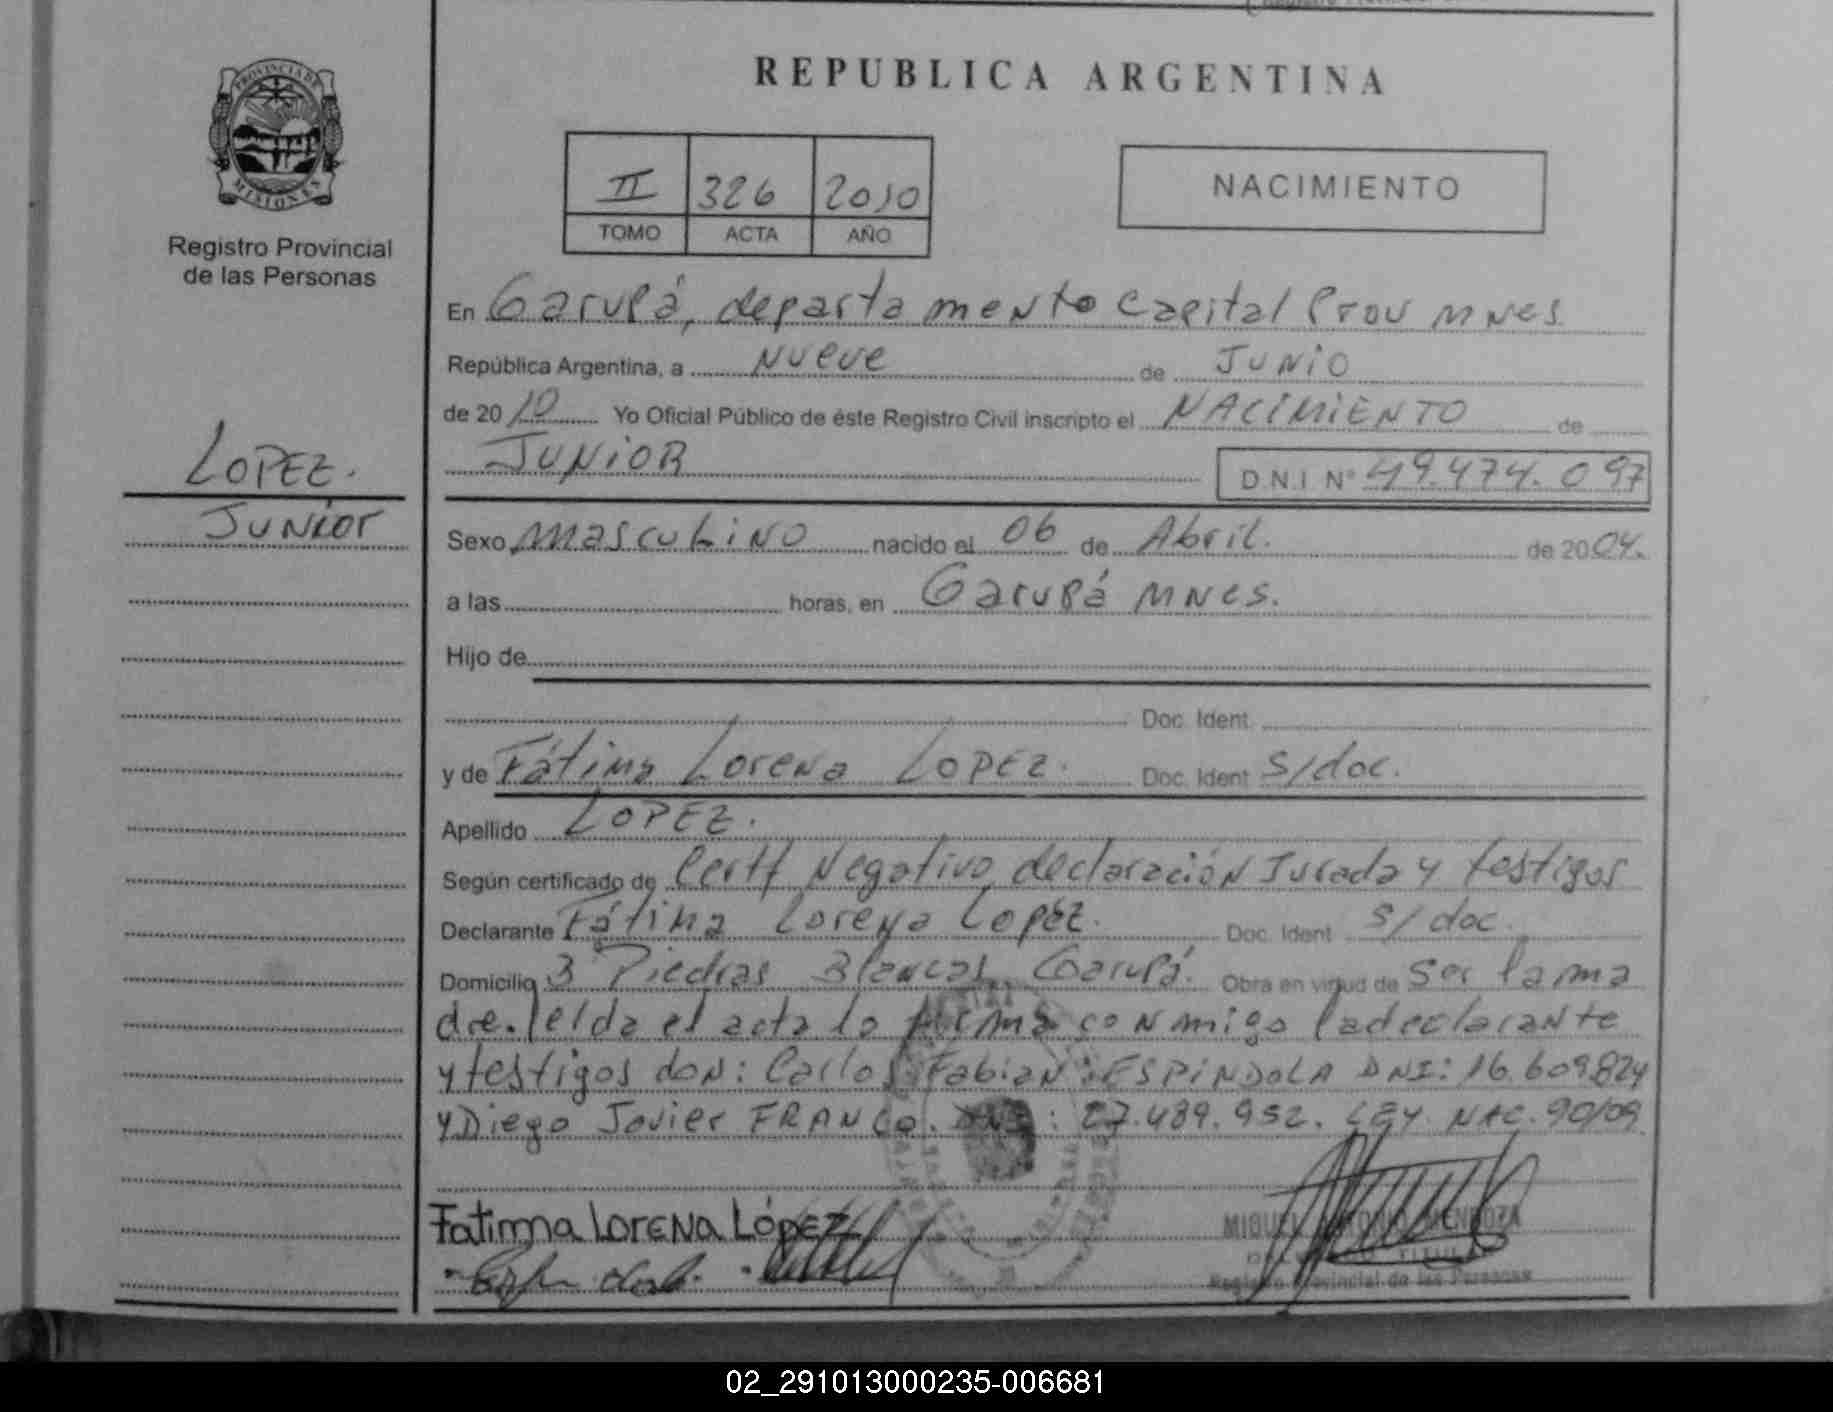 REPUBLICA ARGENTINA
PROVINCIA DE
MISIONES
Registro Provincial
de las Personas
II 326 2010
TOMO ACTA AÑO
NACIMIENTO
En Garupá, departamento Capital Prov MNes
República Argentina, a NUEVE de JUNIO
de 2010 Yo Oficial Público de éste Registro Civil inscripto el NACIMIENTO de
JUNIOR D.N.I Nº 49.474.097
LOPEZ.
JUNIOR
Sexo masculino nacido el 06 de Abril. de 2004.
a las horas, en Garupá MNes.
Hijo de
Doc. Ident.
y de Fátima Lorena LOPEZ. Doc. Ident s/doc.
Apellido LOPEZ.
Según certificado de Certf Negativo, declaración Jurada y testigos
Declarante Fátima Lorena Lopéz. Doc. Ident s/doc.
Domicilio 3 Piedras Blancas Garupá. Obra en virtud de Ser la ma
dre. leida el acta la firma conmigo la declarante
y testigos don: Carlos Fabian ESPINDOLA DNI: 16.609.824
y Diego Javier FRANCO. DNI: 27.489.952. LEY. NAC. 90/09
Fatima LORENA LópEZ
MIGUEL ANTONIO MENDOZA
TITULAR
Registro Provincial de las Personas
02_291013000235-006681